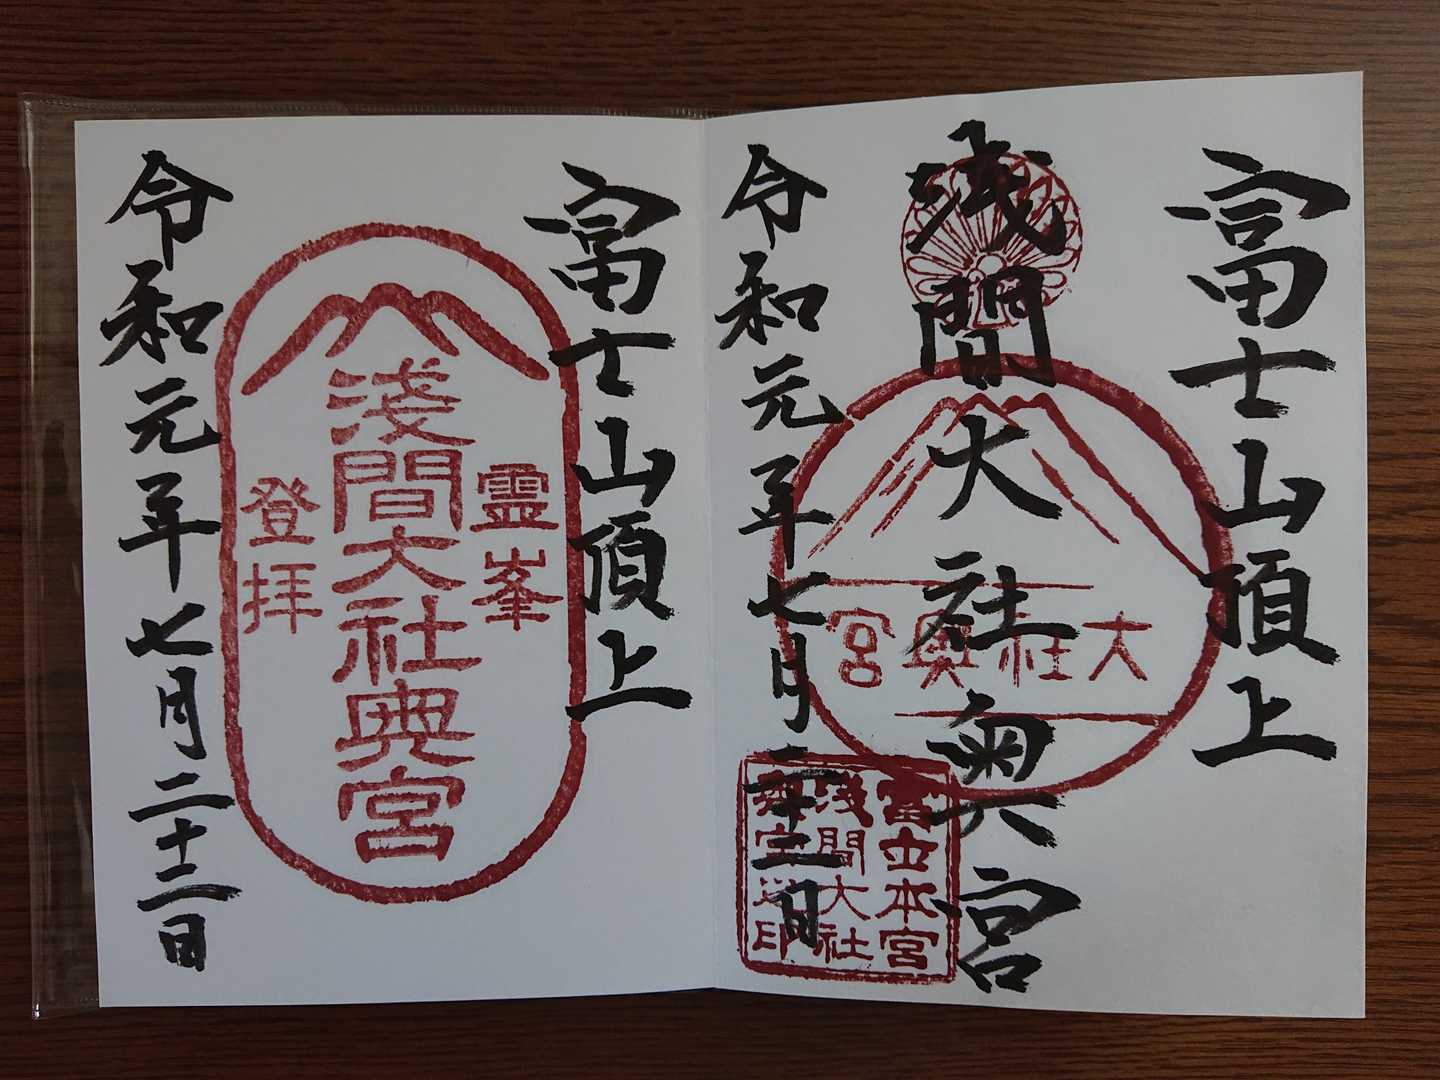 富士山頂上
浅間大社奥宮
令和元年七月二十二日
大社奥宮
富士本宮
浅間大社
奥宮之印
富士山頂上
霊峯
淺間大社奥宮
登拝
令和元年七月二十二日